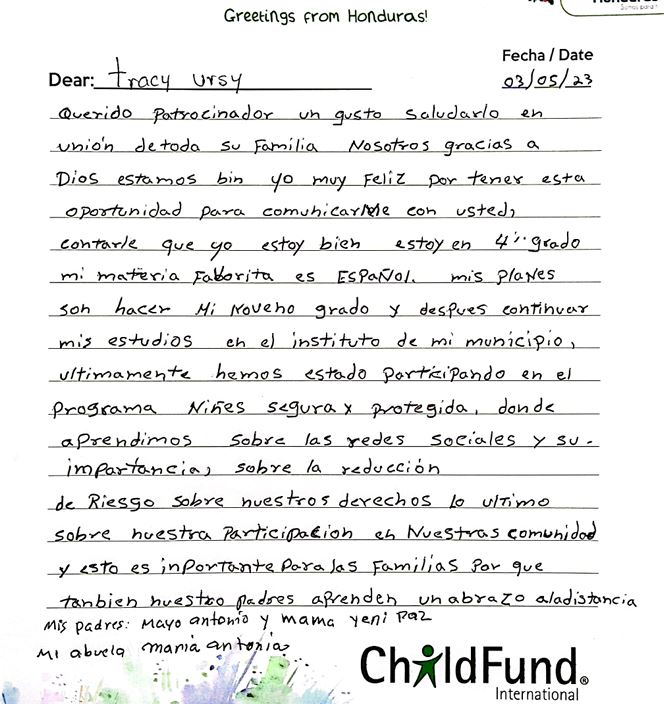 Greetings from Honduras!
Fecha / Date
Dear: tracy ursy
03/05/23
Querido Patrocinador un gusto saludarlo en
unión de toda su Familia Nosotros gracias a
Dios estamos bin yo muy Feliz por tener esta
oportunidad para comunicarme con usted,
contarle que yo estoy bien estoy en 4to. grado
mi materia Faborita es ESPAÑOL. mis planes
son hacer Mi Noveno grado y despues continuar
mis estudios en el instituto de mi municipio,
ultimamente hemos estado participando en el
Programa Niñes segura y protegida, donde
aprendimos sobre las redes sociales y su.
importancia, sobre la reducción
de Riesgo sobre nuestros derechos lo ultimo
sobre nuestra Participacion en Nuestras comunidad
y esto es inportante para las Familias por que
tanbien nuestro padres aprenden un abrazo aladistancia
Mis padres: Mayo antonio y mama yeni paz
Mi abuela maria antonia
ChildFund®
International